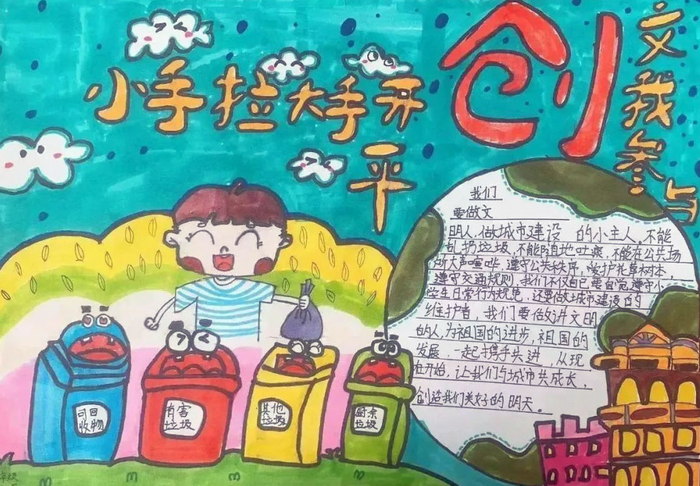 小手拉大手开
平
创
文我参与
我们
要做文
明人,做城市建设 的小主人,不能
乱扔垃圾,不能随地吐痰,不能在公共场
所大声喧哗,遵守公共秩序,爱护花草树木,
遵守交通规则,我们不仅自己要自觉遵守小
学生日常行为规范,还要做城市建设的
维护者,我们要做讲文明
的人,为祖国的进步,祖国的
发展,一起携手共进,从现
在开始,让我们与城市共成长,
创造我们美好的明天。
可回
收物
有害
垃圾
其他
垃圾
厨余
垃圾